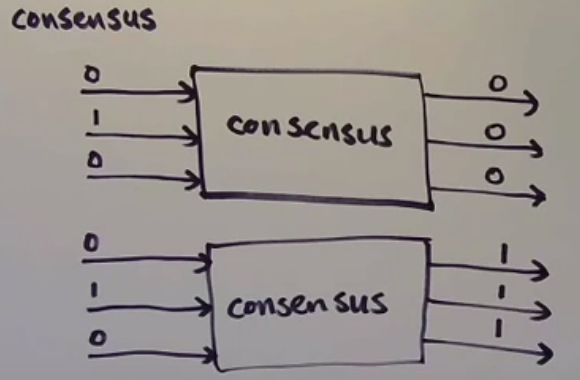 consensus
0 0
1 consensus 0
0 0
0 1
1 consensus 1
0 1